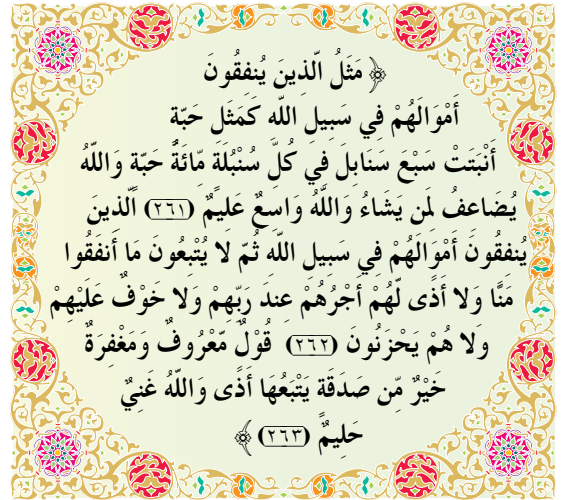 ﴿ مَثَلُ الّذِينَ يُنفِقُونَ
أَمْوَالَهُمْ فِي سَبِيلِ اللّهِ كَمَثَلِ حَبّةٍ
أَنْبَتتْ سَبْعَ سَنابِلَ فِي كُلّ سُنْبُلَةٍ مِّائَةُ حَبّةٍ وَاللّهُ
يُضَاعفُ لِمَن يَشَاءُ وَاللَّهُ وَاسِعٌ عَلِيمٌ (٢٦١) اَلّذين
يُنفِقُونَ أَمْوَالَهُمْ فِي سَبِيلِ اللّه ثُمّ لا يُتْبِعُونَ مَا أَنفَقُوا
مَنًّا وَلا أَذًى لّهُمْ أَجْرُهُمْ عِندَ رَبّهِمْ وَلا خَوْفٌ عَلَيْهِمْ
وَلا هُمْ يَحْزَنُونَ (٢٦٢) قُوْلٌ مّعْرُوفٌ وَمَغْفِرَةٌ
خَيْرٌ مِّن صدَقَةٍ يَتْبَعُهَا أَذًى وَاللّهُ غَنِيٌ
حَلِيمٌ (٢٦٣) ﴾